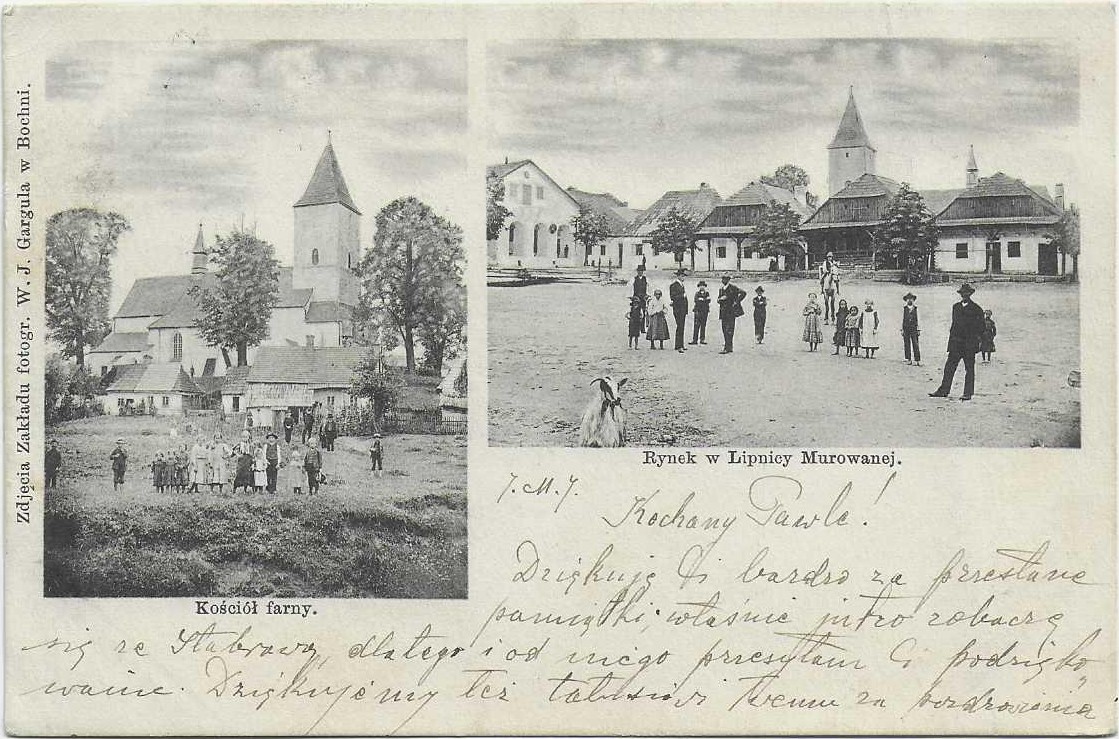 Zdjęcia Zakładu fotogr. W. J. Gargula w Bochni.
Kościół farny.
Rynek w Lipnicy Murowanej.
J. M. J.
Kochany Pawle!
Dziękuję Ci bardzo za przesłane
pamiątki, właśnie jutro zobaczę
się ze dlatego i od niego przesyłam Ci podzięko
wanie. Dziękujemy też za pozdrowienia